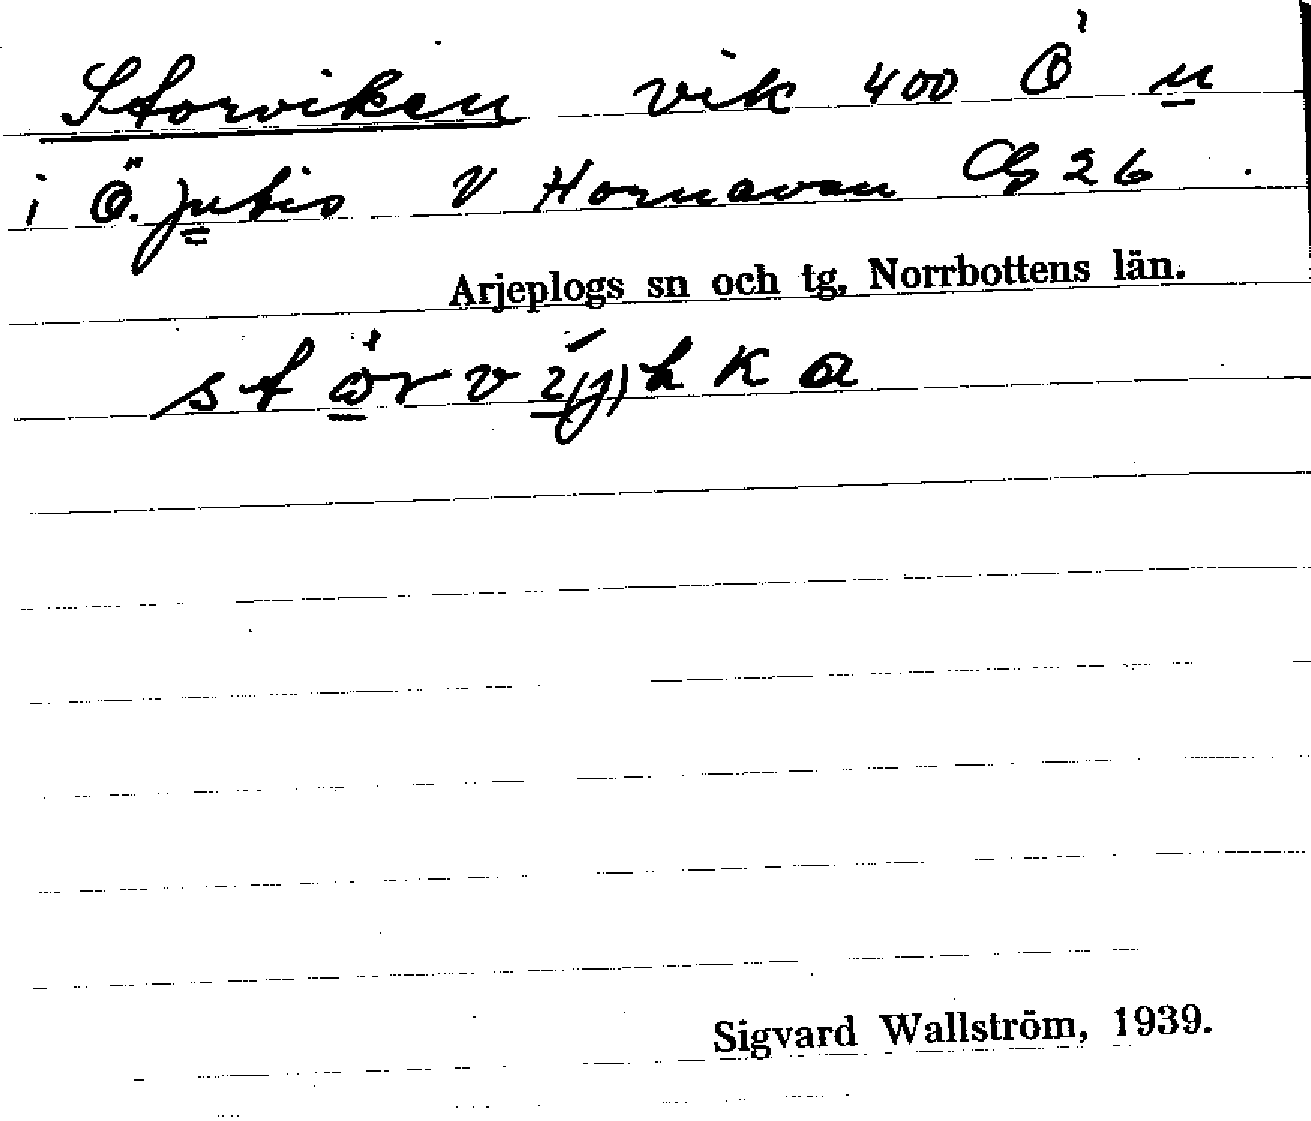 Storviken vik 400 Ö u
i Ö. Jutis V Hornavan Cg 26
Arjeplogs sn och tg, Norrbottens län.
Sigvard Wallström, 1939.